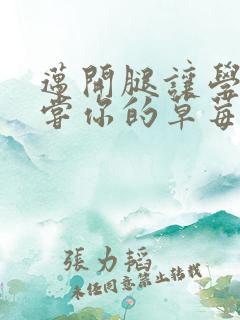 邁開腿讓學
嘗你的草莓
張力韜
未经同意禁止转载